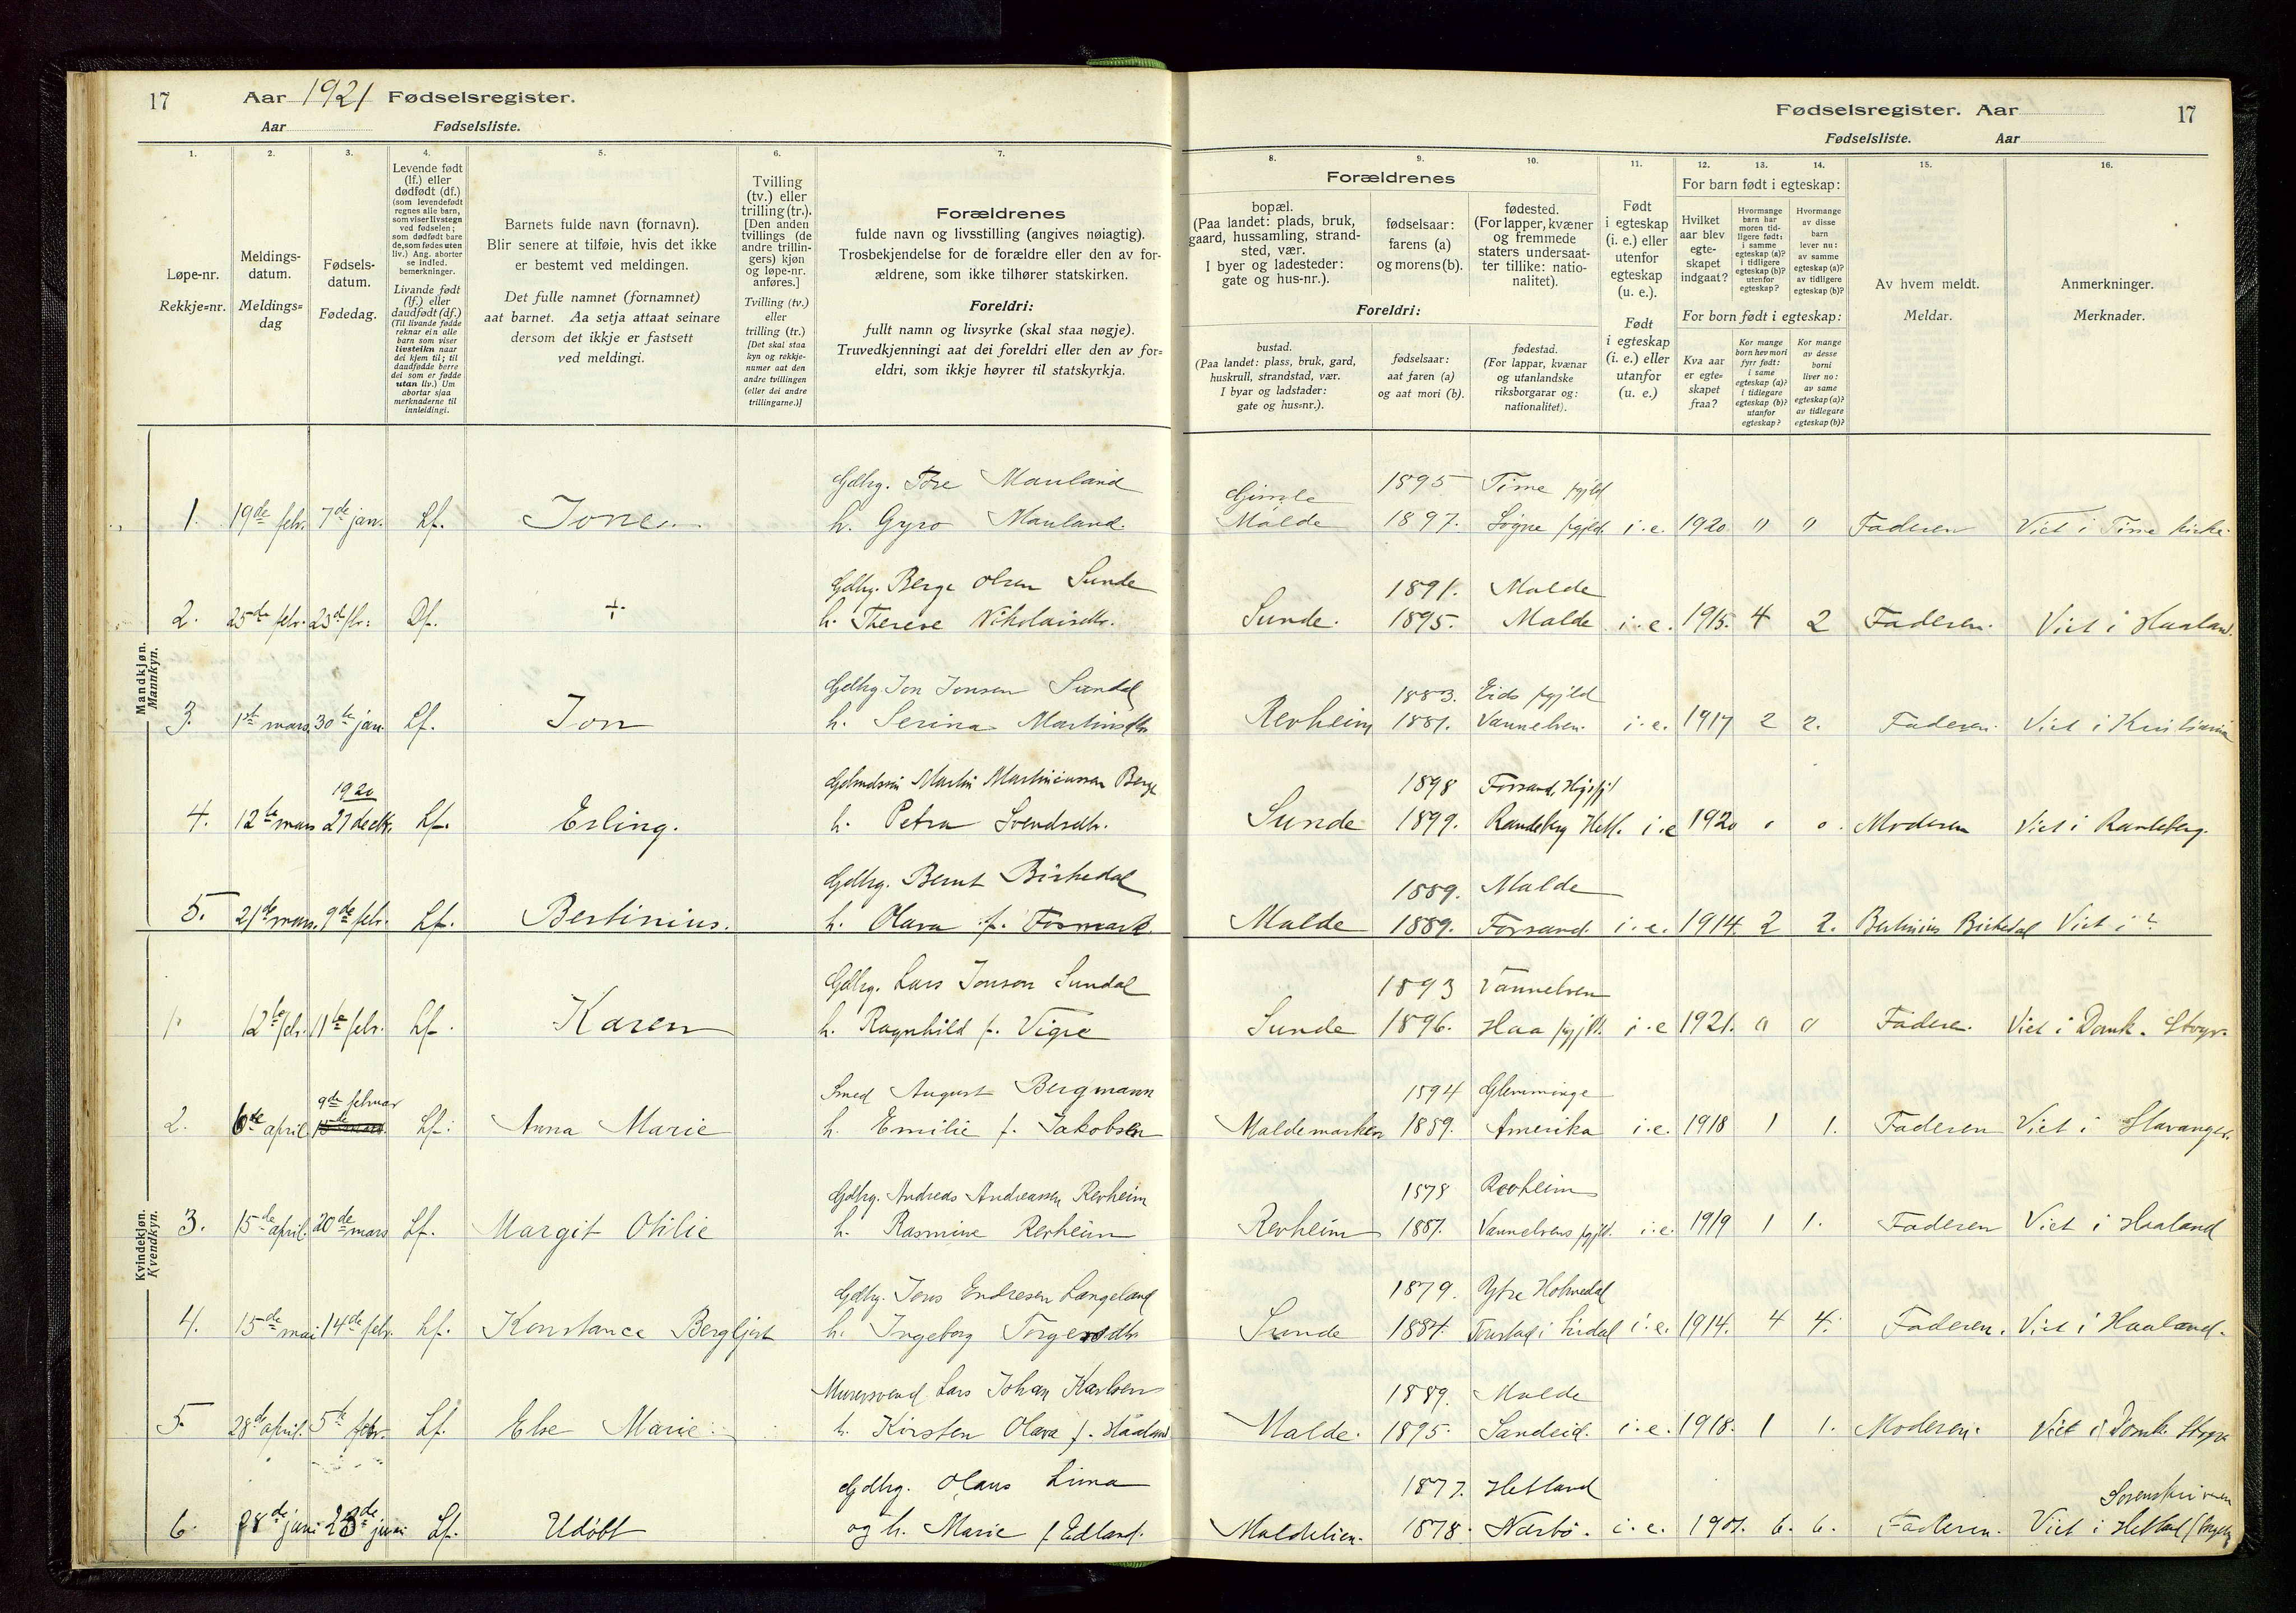 17 Aar 1921 Fødselsregister.
Aar Fødselsliste.
Fødselsregister. Aar 17
Fødselsliste. Aar
1.
Løpe-nr.
Rekkje=nr.
2.
Meldings-
datum.
Meldings=
dag
3.
Fødsels-
datum.
Fødedag.
4.
Levende født
(lf.) eller
dødfødt (df.)
(som levendefødt
regnes alle barn,
som viser livstegn
ved fødselen;
som dødfødt bare
de, som fødes uten
liv.) Ang. aborter
se indled.
bemerkninger.
Livande født
(lf.) eller
daudfødt (df.)
(Til livande fødde
reknar ein alle
barn som viser
livsteikn naar
dei kjem til; til
daudfødde berre
dei som er fødde
utan liv.) Um
abortar sjaa
merknaderne til
innleidingi.
5.
Barnets fulde navn (fornavn).
Blir senere at tilføie, hvis det ikke
er bestemt ved meldingen.
Det fulle namnet (fornamnet)
aat barnet. Aa setja attaat seinare
dersom det ikkje er fastsett
ved meldingi.
6.
Tvilling
(tv.) eller
trilling (tr.).
[Den anden
tvillings (de
andre trillin-
gers) kjøn
og løpe-nr.
anføres.]
Tvilling (tv.)
eller
trilling (tr.)
[Det skal staa
kyn og rekkje-
numer aat den
andre tvillingen
(eller dei andre
trillingarne.)]
7.
Forældrenes
fulde navn og livsstilling (angives nøiagtig).
Trosbekjendelse for de forældre eller den av for-
ældrene, som ikke tilhører statskirken.
Foreldri:
fullt namn og livsyrke (skal staa nøgje).
Truvedkjenningi aat dei foreldri eller den av for=
eldri, som ikkje høyrer til statskyrkja.
Forældrenes
8.
bopæl.
(Paa landet: plads, bruk,
gaard, hussamling, strand-
sted, vær.
I byer og ladesteder:
gate og hus-nr.).
Foreldri:
bustad.
(Paa landet: plass, bruk, gard,
huskrull, strandstad, vær.
I byar og ladstader:
gate og hus=nr.).
9.
fødselsaar:
farens (a)
og morens (b).
fødselsaar:
aat faren (a)
og aat mori (b).
10.
fødested.
(For lapper, kvæner
og fremmede
staters undersaat-
ter tillike: natio-
nalitet).
fødestad.
(For lappar, kvænar
og utanlandske
riksborgarar og:
nationalitet).
11.
Født
i egteskap
(i. e.) eller
utenfor
egteskap
(u. e.).
Født
i egteskap
(i. e.) eller
utanfor
(u. e.)
For barn født i egteskap:
For born født i egteskap:
12.
Hvilket
aar blev
egte-
skapet
indgaat?
Kva aar
er egte=
skapet
fraa?
13.
Hvormange
barn har
moren tid-
ligere født:
i samme
egteskap (a)?
i tidligere
egteskap (b)?
utenfor
egteskap?
Kor mange
born hev mori
fyrr født:
i same
egteskap (a)?
i tidlegare
egteskap (b)?
utanfor
egteskap?
14.
Hvormange
av disse
barn
lever nu:
av samme
egteskap (a)?
av tidligere
egteskap (b)?
Kor mange
av desse
borni
liver no:
av same
egteskap (a)?
av tidlegare
egteskap (b)?
15.
Av hvem meldt.
Meldar.
16.
Anmerkninger.
Merknader.
Mandkjøn.
Mannkyn.
Gdbg. Tore Mauland Gimle 1895 Time pgjld
1. 19de febr. 7de jan. Lf. Jone. h. Gyro Mauland. Malde 1897. Sogne pgjld. i.e. 1920 " " Faderen Viet i Time kirke.
Gdbg. Berge Olsen Sunde 1891. Malde
2. 25de febr. 23de fbr. Df. + h. Therese Nikolaisdtr. Sunde. 1895. Malde i.e. 1915. 4 2 Faderen. Viet i Haaland.
Gdbg. Jon Jonsen Sundal 1883. Eids pgjld
3. 1ste mars. 30te jan. Lf. Jon h. Serina Martinsdtr. Revheim 1881. Vannelven. i.e. 1917 2 2. Faderen. Viet i Kristiania
1920 Martin Martiniussen Berge 1898 Forsand,
4. 12te mars 27 decbr. Lf. Erling. h. Petra Svendsdtr. Sunde 1899. Randeberg Hetl. i.e 1920 o o. Moderen Viet i Randeberg.
Gdbg. Bernt Birkedal 1889. Malde
5. 21de mars. 9de febr. Lf. Bertinius. h. Olava f. Fosmark. Malde 1889. Forsand. i.e. 1914. 2 2. Bertinius Birkedal Viet i ?
Kvindekjøn.
Kvendkyn.
Gdbg. Lars Jonson Sundal 1893 Vannelven
1. 12te febr. 11te febr. Lf. Karen h. Ragnhild f. Vigre Sunde 1896. Haa pgjld. i.e 1921. 0 0 Faderen. Viet i Domk. Stvgr.
9de februar Smed August Bergmann 1894 Glemminge
2. 6te april. 15de mars. Lf. Anna Marie h. Emilie f. Jakobsen Maldemarken 1889. Amerika i.e. 1918 1 1. Faderen Viet i Stavanger.
Gdbg. Andreas Andreassen Revheim 1878 Revheim
3. 15de april. 20de mars Lf. Margit Otilie h. Rasmine Revheim Revheim 1881. Vannelvens pgjld. i.e. 1919 1 1. Faderen Viet i Haaland
Gdbg. Jens Endresen Langeland 1879. Ytre Holmedal
4. 15de mai 14de febr. Lf. Konstance Bergljot h. Ingeborg Torgersdtr. Sunde 1884. i Sirdal i.e. 1914. 4 4. Faderen. Viet i Haaland.
Murersvend Lars Johan Karlsen 1889. Malde
5. 28de april. 5te febr. Lf. Else Marie. h. Kirsten Olava f. Haaland Malde. 1895. Sandeid. i.e. 1918. 1 1. Moderen. Viet i Domk. Stvgr.
Gdbg. Olaus Lima 1877. Hetland Sorenskriveren
6. 28de juni 23de juni Lf. Udøbt og h. Marie f. Edland. Maldelien. 1878. Nærbø. i.e. 1901. 6. 6. Faderen. Viet i Hetland